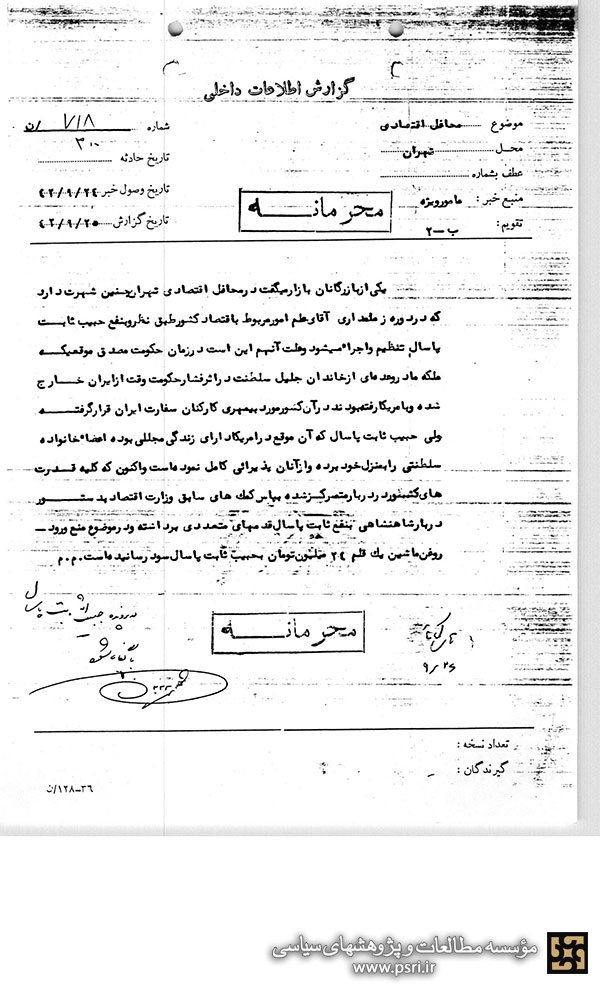 گزارش اطلاعات داخلی
موضوع محافل اقتصادی
محل تهران
عطف بشماره
منبع خبر : مامورویژه
تقویم : ب-۲
شماره ۷۱۸ /ن
۳۰۰
تاریخ حادثه
تاریخ وصول خبر ۴۲/۹/۲۴
تاریخ گزارش ۴۲/۹/۲۵
محرمانه
یکی ازبازرگانان بازارمیگفت درمحافل اقتصادی تهران چنین شهرت دارد
که در دوره زمامداری آقای علم امورمربوط باقتصاد کشورطبق نظروبنفع حبیب ثابت
پاسال تنظیم واجراء میشود وعلت آنهم این است درزمان حکومت مصدق موقعیکه
ملکه مادروعده‌ای ازخاندان جلیل سلطنت دراثرفشارحکومت وقت ازایران خارج
شده وبامریکا رفته بودند درآن کشورمورد بیمهری کارکنان سفارت ایران قرارگرفته
ولی حبیب ثابت پاسال که آن موقع درامریکا دارای زندگی مجللی بوده اعضاء خانواده
سلطنتی رابمنزل خود برده وازآنان پذیرائی کامل نموده است واکنون که کلیه قدرت
های کشور در دربار متمرکزشده بپاس کمک های سابق وزارت اقتصاد بدستور
دربارشاهنشاهی بنفع ثابت پاسال قدمهای متعددی برداشته ودرموضوع منع ورود
روغن ماشین یک قلم ۲۴ میلیون تومان بحبیب ثابت پاسال سود رسانیده است.م.م
محرمانه
در پرونده حبیب ثابت پاسال
بایگانی شود
۹/۲۶
تعداد نسخه :
گیرندگان :
۳۶-۱۲۸/ن
مؤسسه مطالعات و پژوهشهای سیاسی
www.psri.ir